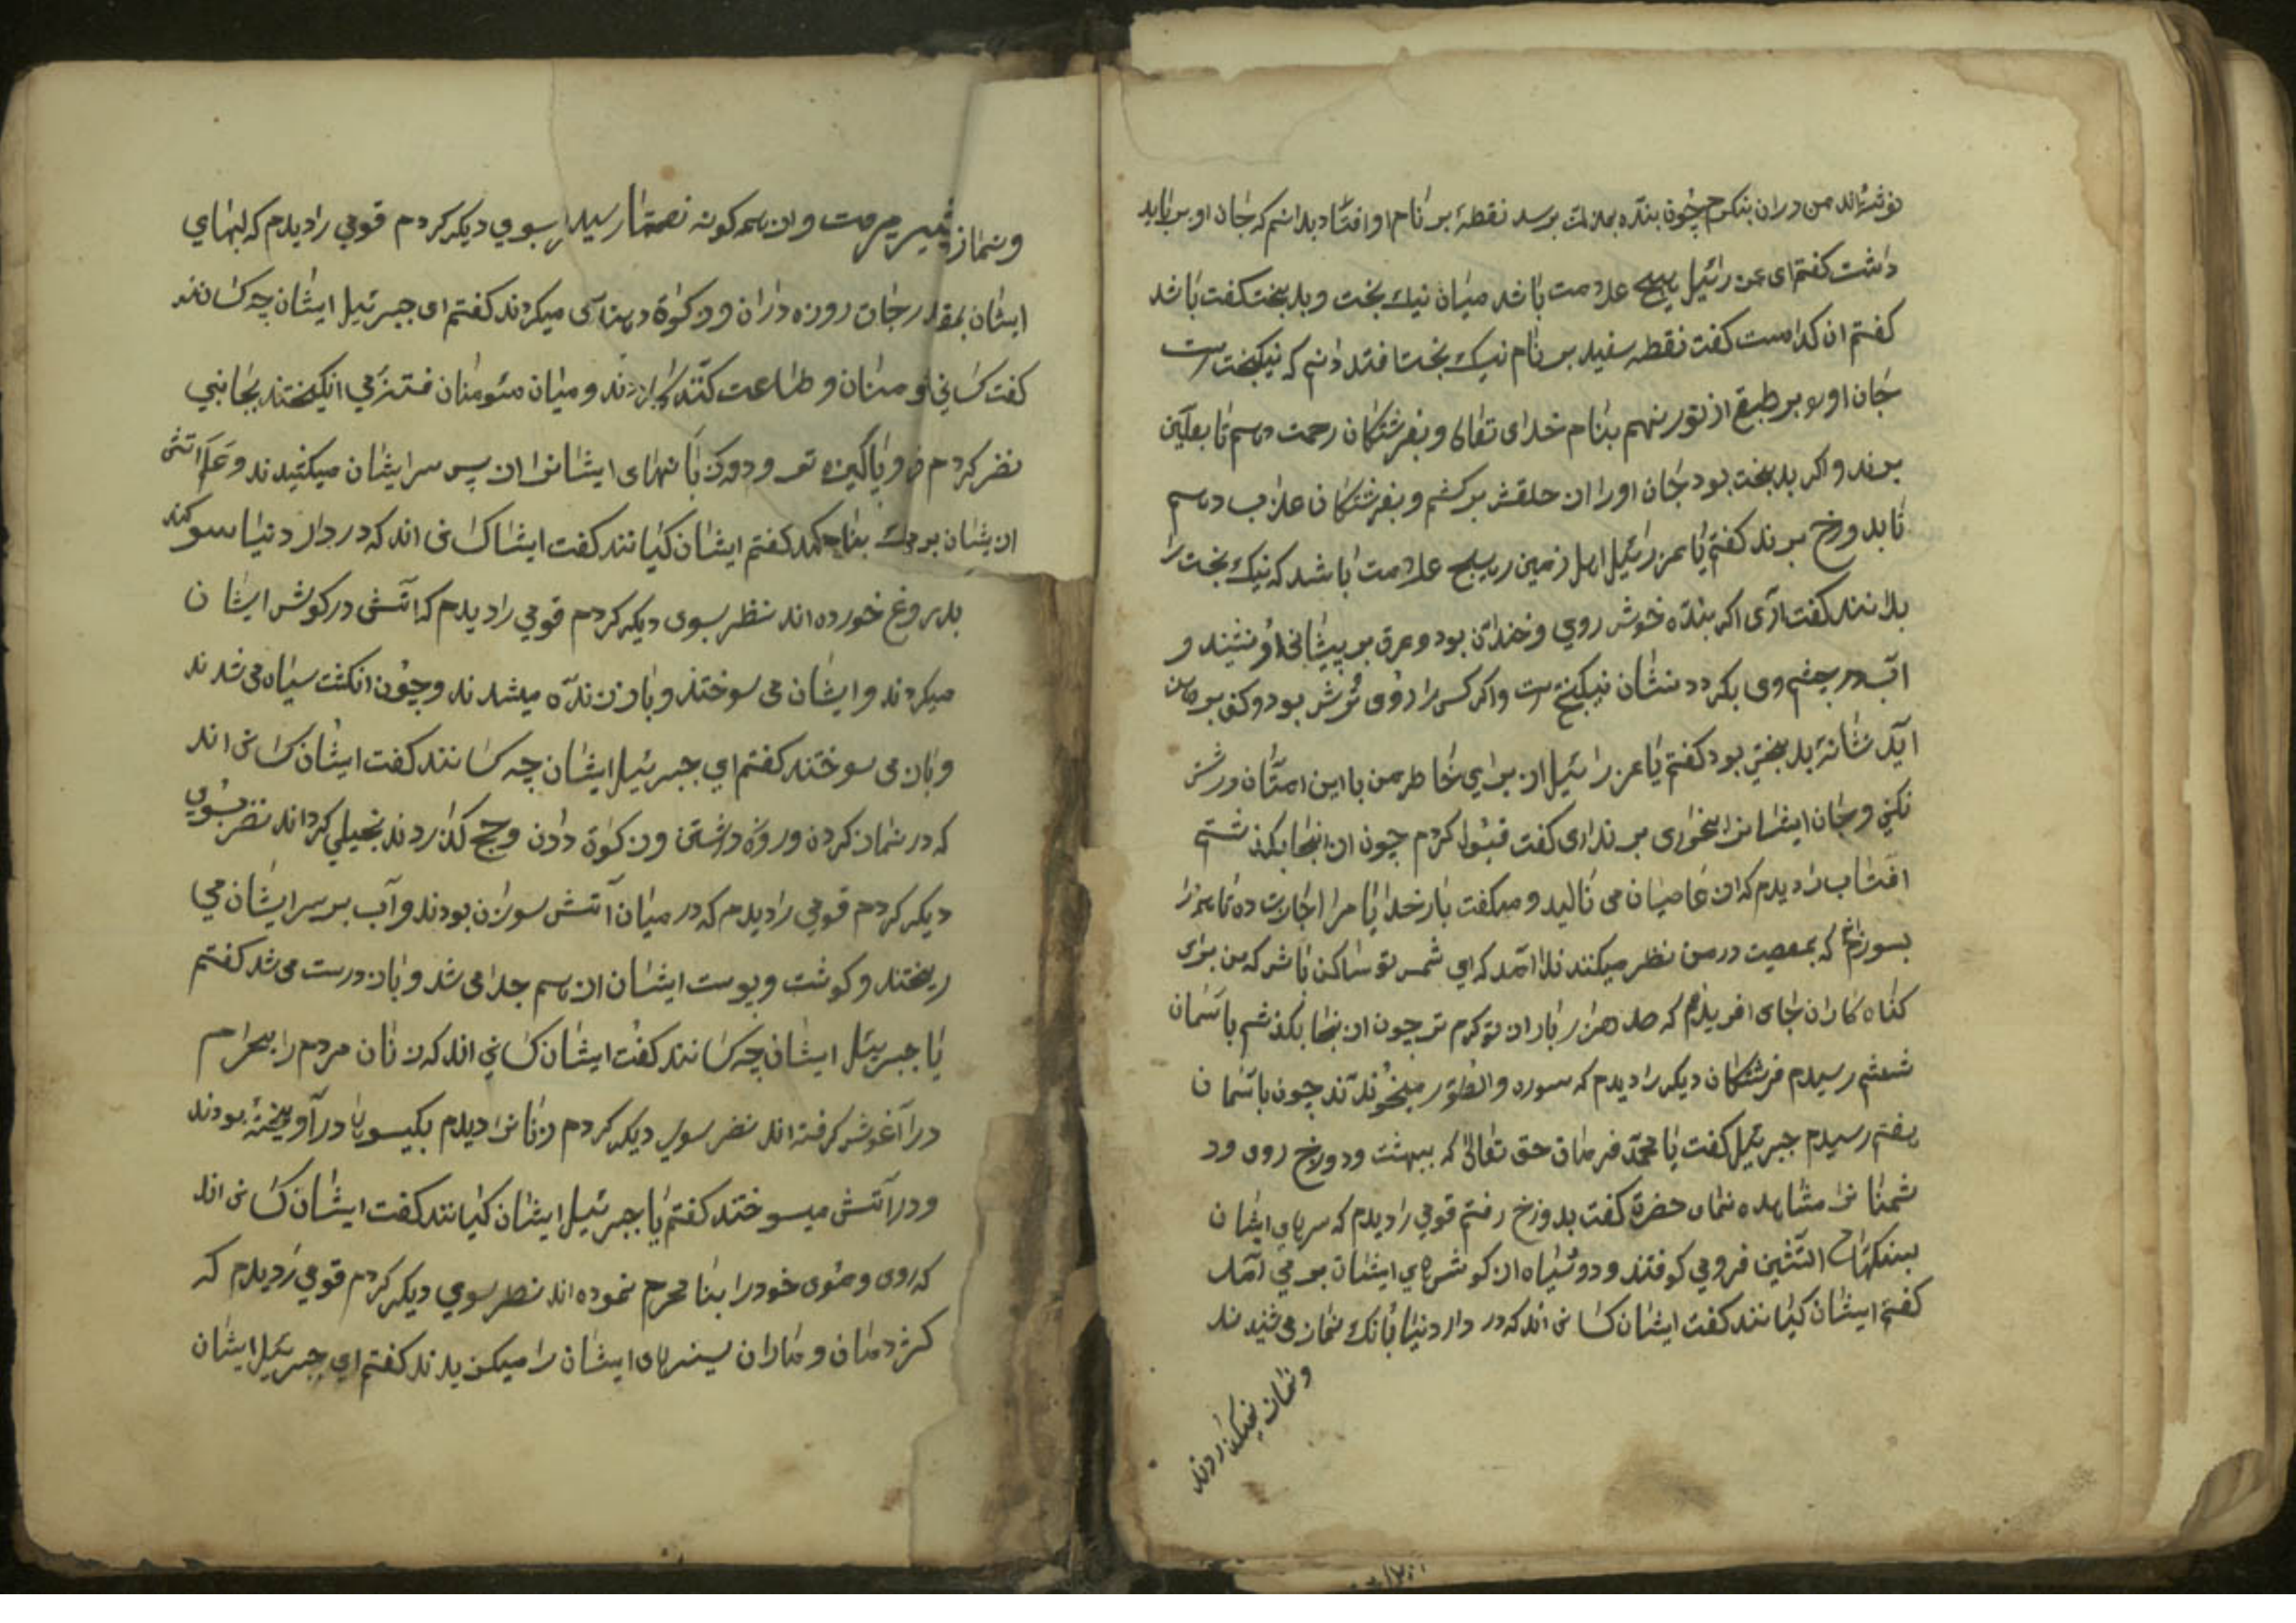 نوشته‌اند من دران بنکرم چون بنده برسد نقطهٔ بر نام او افتاد بدانم که جان او بر باید
داشت کفتم ای عزرائیل هیچ علامت باشد میان نیک بخت و بدبخت کفت باشد
کفتم ان کدامست کفت نقطه سفید بر نام نیک بخت افتد دانم که نیکبخت است
جان اورا بر طبقی از نور نهم بنام خدای تعالی و بفرشتکان رحمت دهم تا بعلیین
برند و اکر بدبخت بود جان اورا از حلقش برکشم و بفرشتکان عذاب دهم
تا بدوزخ برند کفتم یا عزرائیل اهل زمین را هیچ علامت باشد که نیک بخت را
بدانند کفت آری اکر بنده خوش روی و خندان بود و عرق بر پیشانی او نشیند و
آب در چشم وی بکردد نشان نیکبختی است و اکر کسی را روی ترش بود و کف بر دهان
آید نشانهٔ بدبختی بود کفتم یا عزرائیل از برای خاطر من با این امتان درشتی
نکنی و جان ایشانرا بخواری بر نداری کفت قبول کردم چون از انجا بکذشتم
افتاب را دیدم که از عاصیان می نالید و میکفت بار خدایا مرا اجازت ده تا همه را
بسوزانم که بمعصیت در من نظر میکنند ندا آمد که ای شمس تو ساکن باش که من برای
کناه کاران جای افریدم که صد هزار بار از تو کرم تر چون از انجا بکذشتم باسمان
ششم رسیدم فرشتکان دیکر را دیدم که سوره والطور میخواندند چون باسمان
هفتم رسیدم جبرئیل کفت یا محمد فرمان حق تعالی که ببهشت و دوزخ روی و د
شمنانرا مشاهده نمای حضرت کفت بدوزخ رفتم قومی را دیدم که سرهای ایشان
بسنکهای اتشین فرو می کوفتند و دود سیاه از کوشهای ایشان بر می آمد
کفتم ایشان کیانند کفت ایشان کسانی اند که در دار دنیا بانک نماز می شنیدند
و نماز نمیکزاردند
و نماز و ان همه کونه نعمتها رسید بسوی دیکر کردم قومی را دیدم که لبهای
ایشان بمقراض روزه داران و زکوة میکردند کفتم ای جبرئیل ایشان چه کسانند
کفت کسانی و طاعت کنند و میان مئومنان فتنه می انکیختند بجانبی
نظر کردم زبانهای ایشانرا از پس سر ایشان میکشیدند و عذاب اتش
ایشان کفتم ایشان کیانند کفت ایشان کسانی اند که در دار دنیا سوکند
بدروغ خورده اند نظر بسوی دیکر کردم قومی را دیدم که آتش در کوش ایشان
میکردند و ایشان می سوختند و باز زنده میشدند و چون انکشت سیاه می شدند
و باز می سوختند کفتم ای جبرئیل ایشان چه کسانند کفت ایشان کسانی اند
که در نماز کردن و روزه داشتن و زکوة دادن و حج کذاردند بخیلی کرده اند نظر بسوی
دیکر کردم قومی را دیدم که در میان آتش سوزان بودند و آب بر سر ایشان می
ریختند و کوشت و پوست ایشان از هم جدا می شد و باز درست می شد کفتم
یا جبرئیل ایشان چه کسانند کفت ایشان کسانی اند که زنان مردم را بحرام
در آغوش کرفته اند نظر بسوی دیکر کردم زنانرا دیدم بکیسوها در آویخته بودند
و در آتش میسوختند کفتم یا جبرئیل ایشان کیانند کفت ایشان کسانی اند
که روی و موی خود را بنا محرم نموده اند نظر بسوی دیکر کردم قومی را دیدم که
کژدمان و ماران ایشان را میکزیدند کفتم ای جبرئیل ایشان